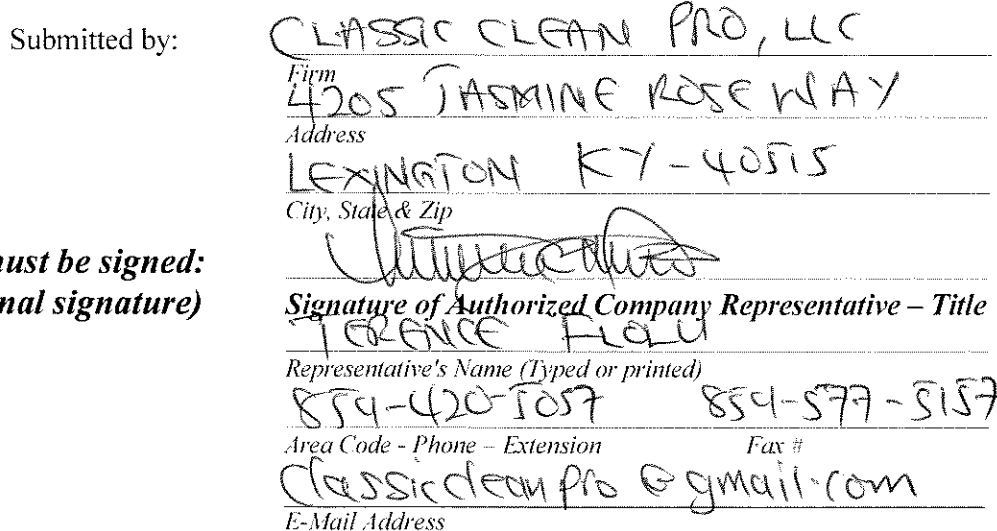 Submitted by: CLASSIC CLEAN PRO, LLC
Firm
4205 JASMINE ROSE WAY
Address
LEXINGTON KY-40515
City, State & Zip
nust be signed:
nal signature)
Signature of Authorized Company Representative – Title
TERENCE
Representative's Name (Typed or printed)
859-420-5057 859-577-5157
Area Code - Phone – Extension Fax #
classiccleanpro@gmail.com
E-Mail Address